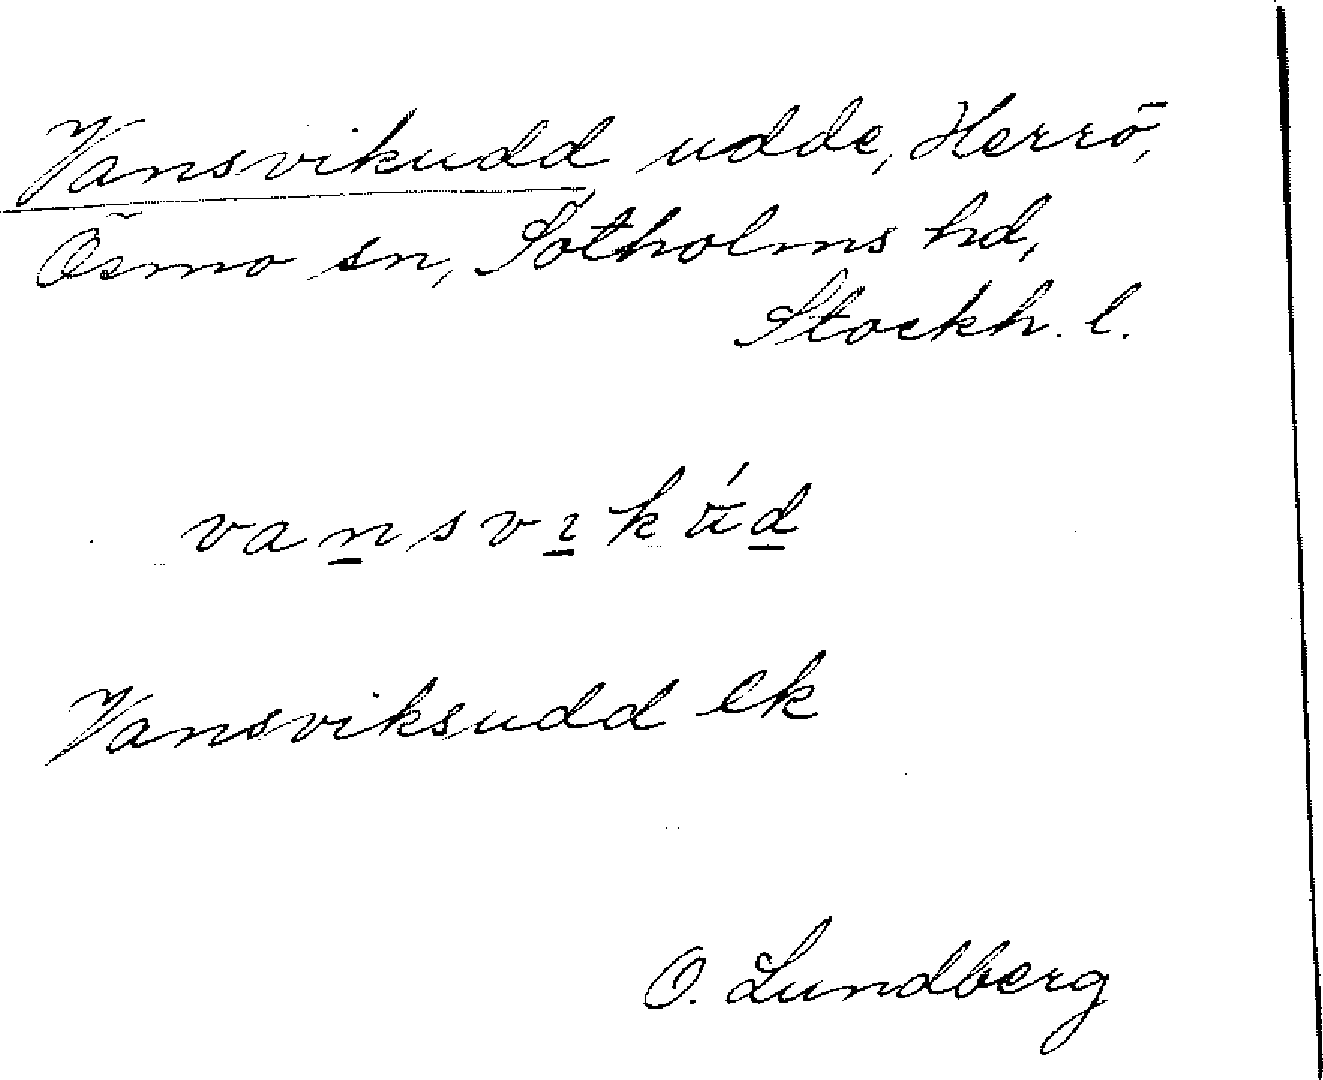 Vansvikudd udde, Herrö,
Ösmo sn, Sotholms hd,
Stockh. l.
vansvɩkúd
Vansviksudd ek
O. Lundberg